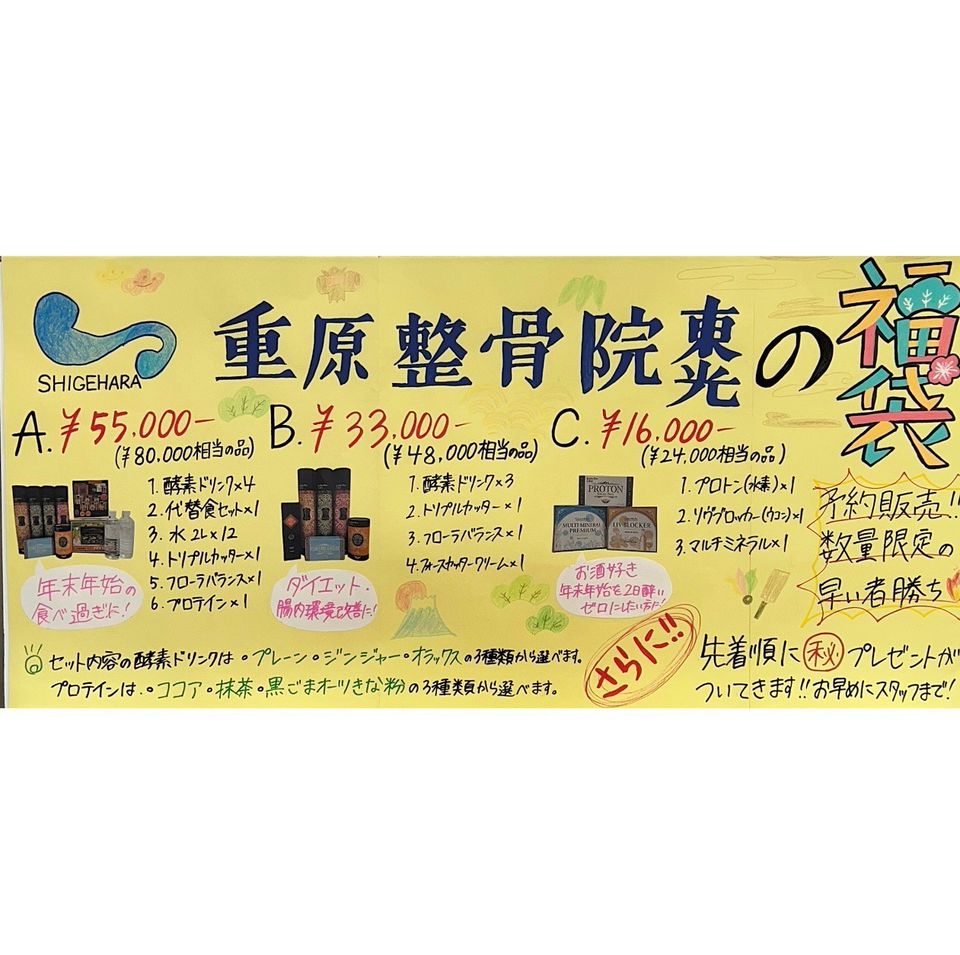 SHIGEHARA
重原整骨院東光の福袋
A. ¥55,000-
(¥80,000相当の品)
1. 酵素ドリンク×4
2. 代替食セット×1
3. 水 2L×12
4. トリプルカッター×1
5. フローラバランス×1
6. プロテイン×1
年末年始の
食べ過ぎに!
B. ¥33,000-
(¥48,000相当の品)
1. 酵素ドリンク×3
2. トリプルカッター×1
3. フローラバランス×1
4. フォースカッタークリーム×1
ダイエット・
腸内環境改善に!
C. ¥16,000-
(¥24,000相当の品)
1. プロトン(水素)×1
2. リヴブロッカー(ウコン)×1
3. マルチミネラル×1
PROTON
MULTI MINERAL
PREMIUM
LIV BLOCKER
お酒好き
年末年始を2日酔い
ゼロにしたい方に!
予約販売!!
数量限定の
早い者勝ち
セット内容の酵素ドリンクは・プレーン・ジンジャー・オラックスの3種類から選べます。
プロテインは、・ココア・抹茶・黒ごまオーツきな粉の3種類から選べます。
さらに!!
先着順に㊙プレゼントが
ついてきます!!お早めにスタッフまで!